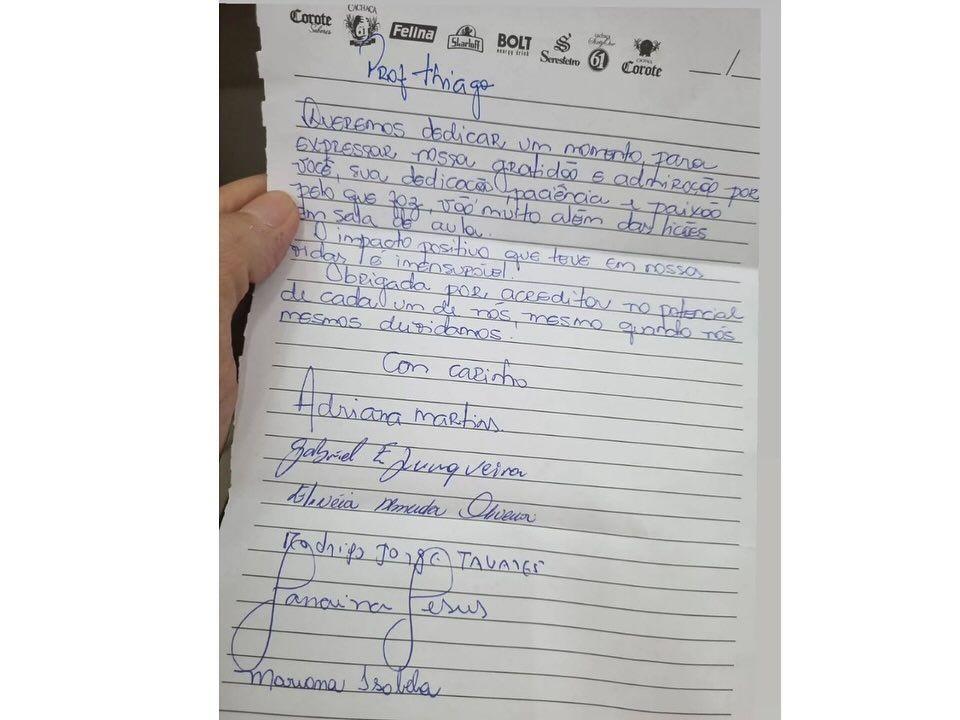 Corote Sabores CACHAÇA 61 Felina Skarloff BOLT energy drink Seresteiro 61 Corote
__/
Prof Thiago
Queremos dedicar um momento, para
expressar nossa gratidão e admiração por
você, sua dedicação, paciência e paixão
pelo que faz, vão muito além das lições
em sala de aula.
O impacto positivo que teve em nossas
vidas é imensurável.
Obrigada por acreditar no potencial
de cada um de nós, mesmo quando nós
mesmos duvidamos.
Com carinho
Adriana Martins.
Gabriel E Junqueira
Almeida Oliveira
Rodrigo Jorge TAVARES
Janaina Jesus
Mariana Isabela